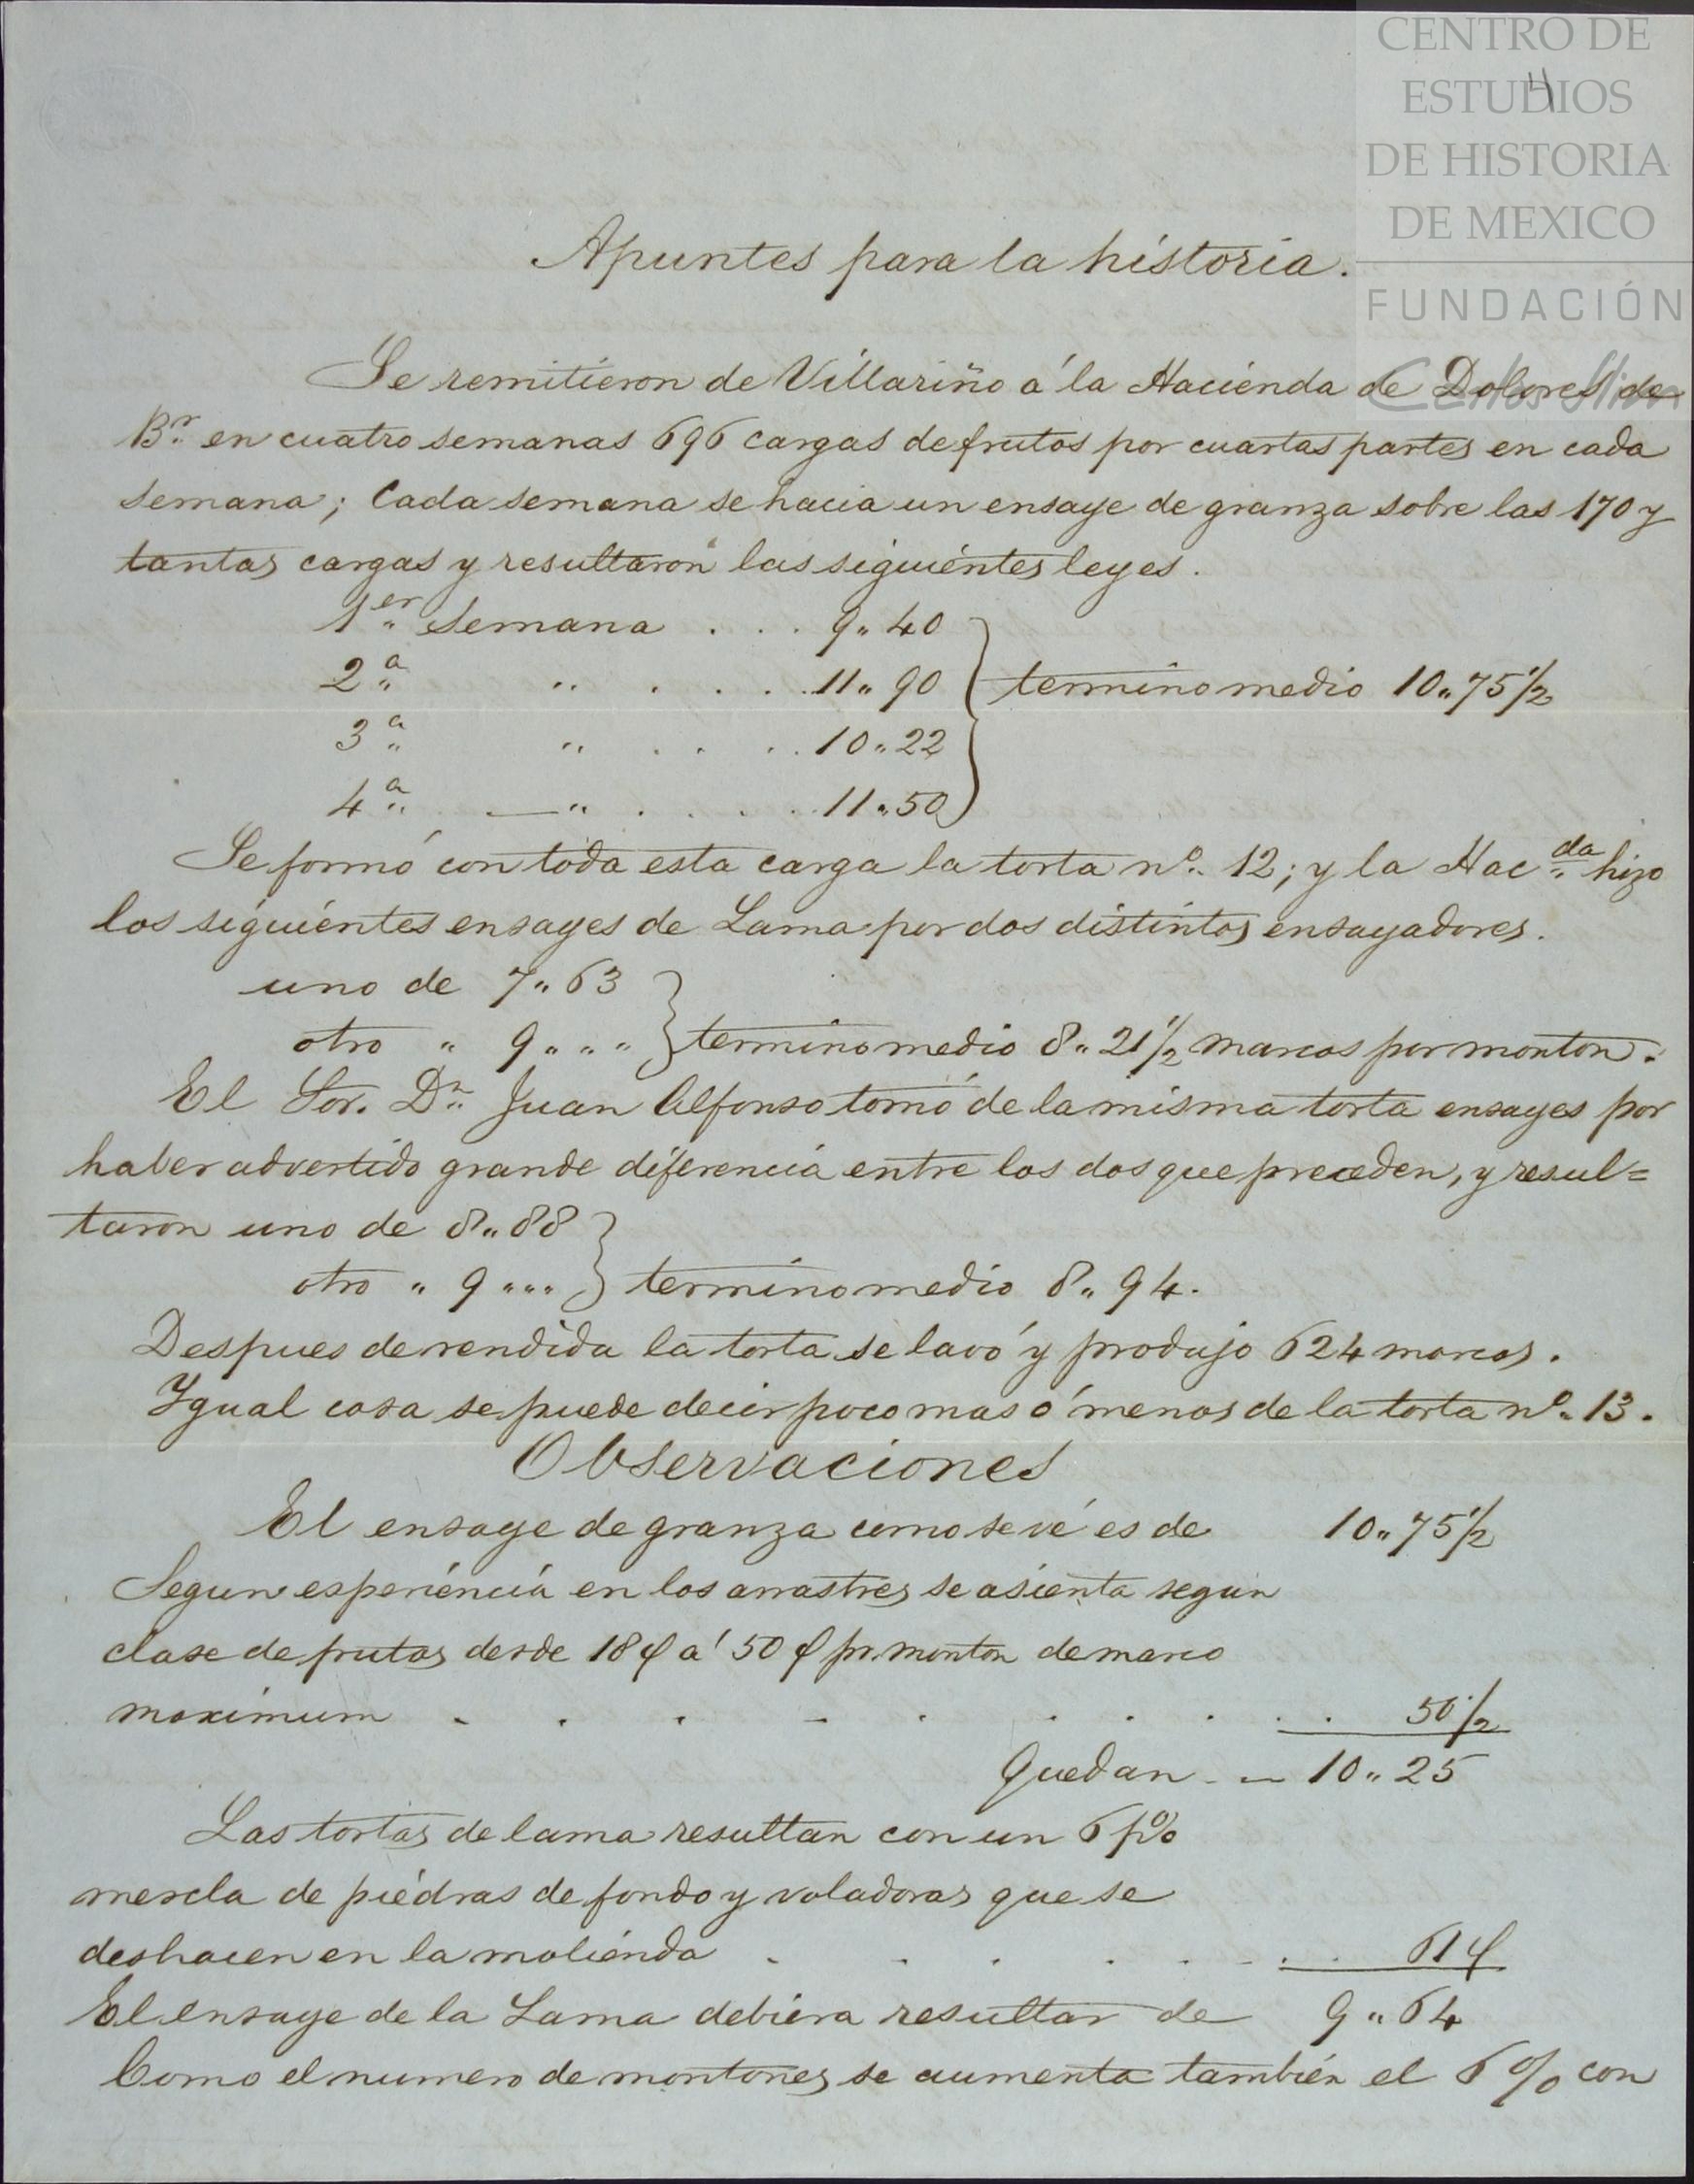 CENTRO DE
ESTUDIOS
DE HISTORIA
DE MEXICO
FUNDACIÓN
Carlos Slim
4
Apuntes para la historia.
Se remitieron de Villariño á la Hacienda de Dolores de
Br. en cuatro semanas 696 cargas de frutos por cuartas partes en cada
semana; Cada semana se hacia un ensaye de granza sobre las 170 y
tantas cargas y resultaron las siguientes leyes.
1er Semana . . . 9" 40
2a " . . . 11" 90 } termino medio 10" 75 1/2
3a " . . . . 10" 22
4a — " . . . . 11" 50
Se formó con toda esta carga la torta no. 12; y la Hacda hizo
los siguientes ensayes de Lama por dos distintos ensayadores.
uno de 7" 63
otro " 9 " " " } termino medio 8" 21 1/2 marcos por monton.
El Sor. Dn. Juan Alfonso tomó de la misma torta ensayes por
haber advertido grande diferencia entre los dos que preceden, y resul=
taron uno de 8" 88
otro " 9 " " " } termino medio 8" 94.
Despues de rendida la torta se lavó y produjo 624 marcos.
Ygual cosa se puede decir poco mas ó menos de la torta no. 13.
Observaciones
El ensaye de granza como se vé es de 10" 75 1/2
Segun esperiencia en los arrastres se asienta segun
clase de frutos desde 18 á 50 pr. monton de marco
maximum - . . - . . . . . . 50 1/2
Quedan - — 10" 25
Las tortas de lama resultan con un 6 p%
mescla de piedras de fondo y voladoras que se
deshacen en la molienda - . . . . - . . 61
El ensaye de la Lama debiera resultar de 9" 64
Como el numero de montones se aumenta tambien el 6 % con